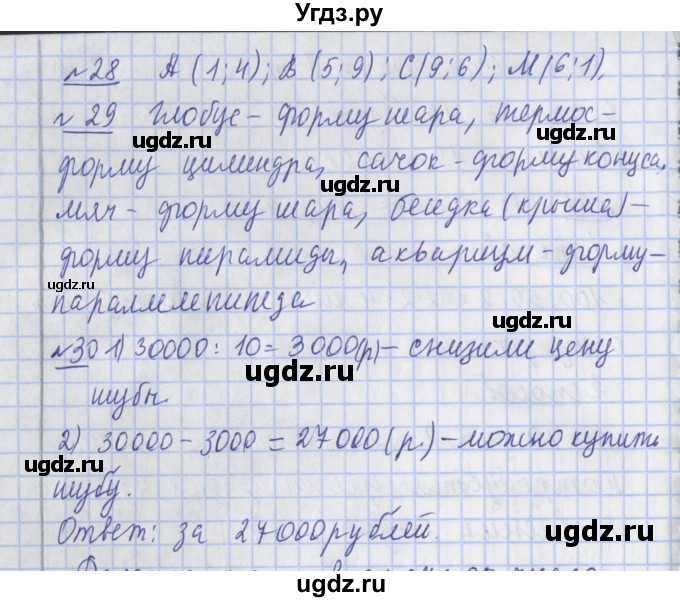 Угдз.ру
№28 A (1;4); B (5;9); C(9;6); M(6;1).
№29 Глобус - форму шара, термос-
форму цилиндра, сачок - форму конуса,
мяч - форму шара, беседка (крыша) -
форму пирамиды, аквариум - форму -
параллелепипеда
№30 1) 30000 : 10 = 3000(р) - снизили цену
шубы.
2) 30000 - 3000 = 27000 (р.) - можно купить
шубу.
Ответ: за 27000 рублей.
ugdz.ru
ugdz.ru
ugdz.ru
ugdz.ru
ugdz.ru
ugdz.ru
ugdz.ru
ugdz.ru
ugdz.ru
ugdz.ru